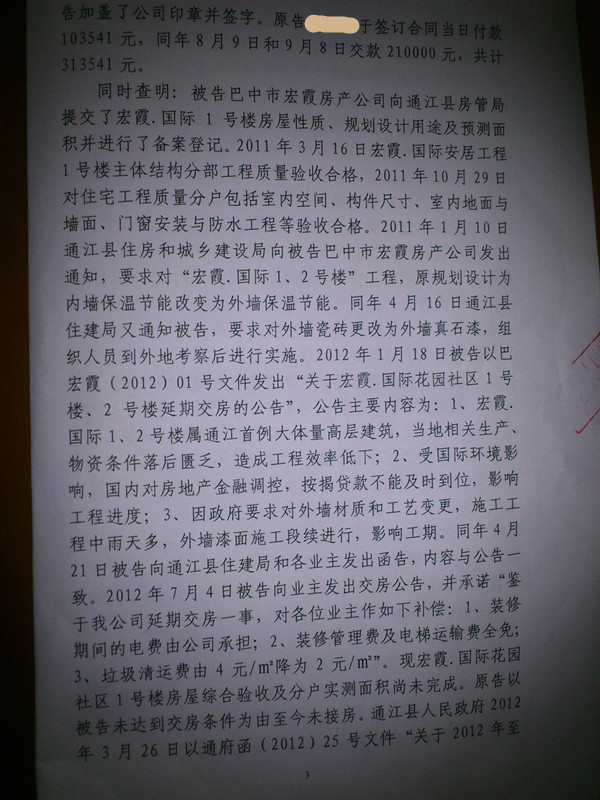 告加盖了公司印章并签字。原告 于签订合同当日付款
103541 元，同年 8 月 9 日和 9 月 8 日交款 210000 元，共计
313541 元。
同时查明：被告巴中市宏霞房产公司向通江县房管局
提交了宏霞.国际 1 号楼房屋性质、规划设计用途及预测面
积并进行了备案登记。2011 年 3 月 16 日宏霞.国际安居工程
1 号楼主体结构分部工程质量验收合格，2011 年 10 月 29 日
对住宅工程质量分户包括室内空间、构件尺寸、室内地面与
墙面、门窗安装与防水工程等验收合格。2011 年 1 月 10 日
通江县住房和城乡建设局向被告巴中市宏霞房产公司发出
通知，要求对“宏霞.国际 1、2 号楼”工程，原规划设计为
内墙保温节能改变为外墙保温节能。同年 4 月 16 日通江县
住建局又通知被告，要求对外墙瓷砖更改为外墙真石漆，组
织人员到外地考察后进行实施。2012 年 1 月 18 日被告以巴
宏霞（2012）01 号文件发出“关于宏霞.国际花园社区 1 号
楼、2 号楼延期交房的公告”，公告主要内容为：1、宏霞.
国际 1、2 号楼属通江首例大体量高层建筑，当地相关生产、
物资条件落后匮乏，造成工程效率低下；2、受国际环境影
响，国内对房地产金融调控，按揭贷款不能及时到位，影响
工程进度；3、因政府要求对外墙材质和工艺变更，施工工
程中雨天多，外墙漆面施工段续进行，影响工期。同年 4 月
21 日被告向通江县住建局和各业主发出函告，内容与公告一
致。2012 年 7 月 4 日被告向业主发出交房公告，并承诺“鉴
于我公司延期交房一事，对各位业主作如下补偿：1、装修
期间的电费由公司承担；2、装修管理费及电梯运输费全免；
3、垃圾清运费由 4 元/㎡降为 2 元/㎡”。现宏霞.国际花园
社区 1 号楼房屋综合验收及分户实测面积尚未完成。原告以
被告未达到交房条件为由至今未接房。通江县人民政府 2012
年 3 月 26 日以通府函（2012）25 号文件“关于 2012 年至
3